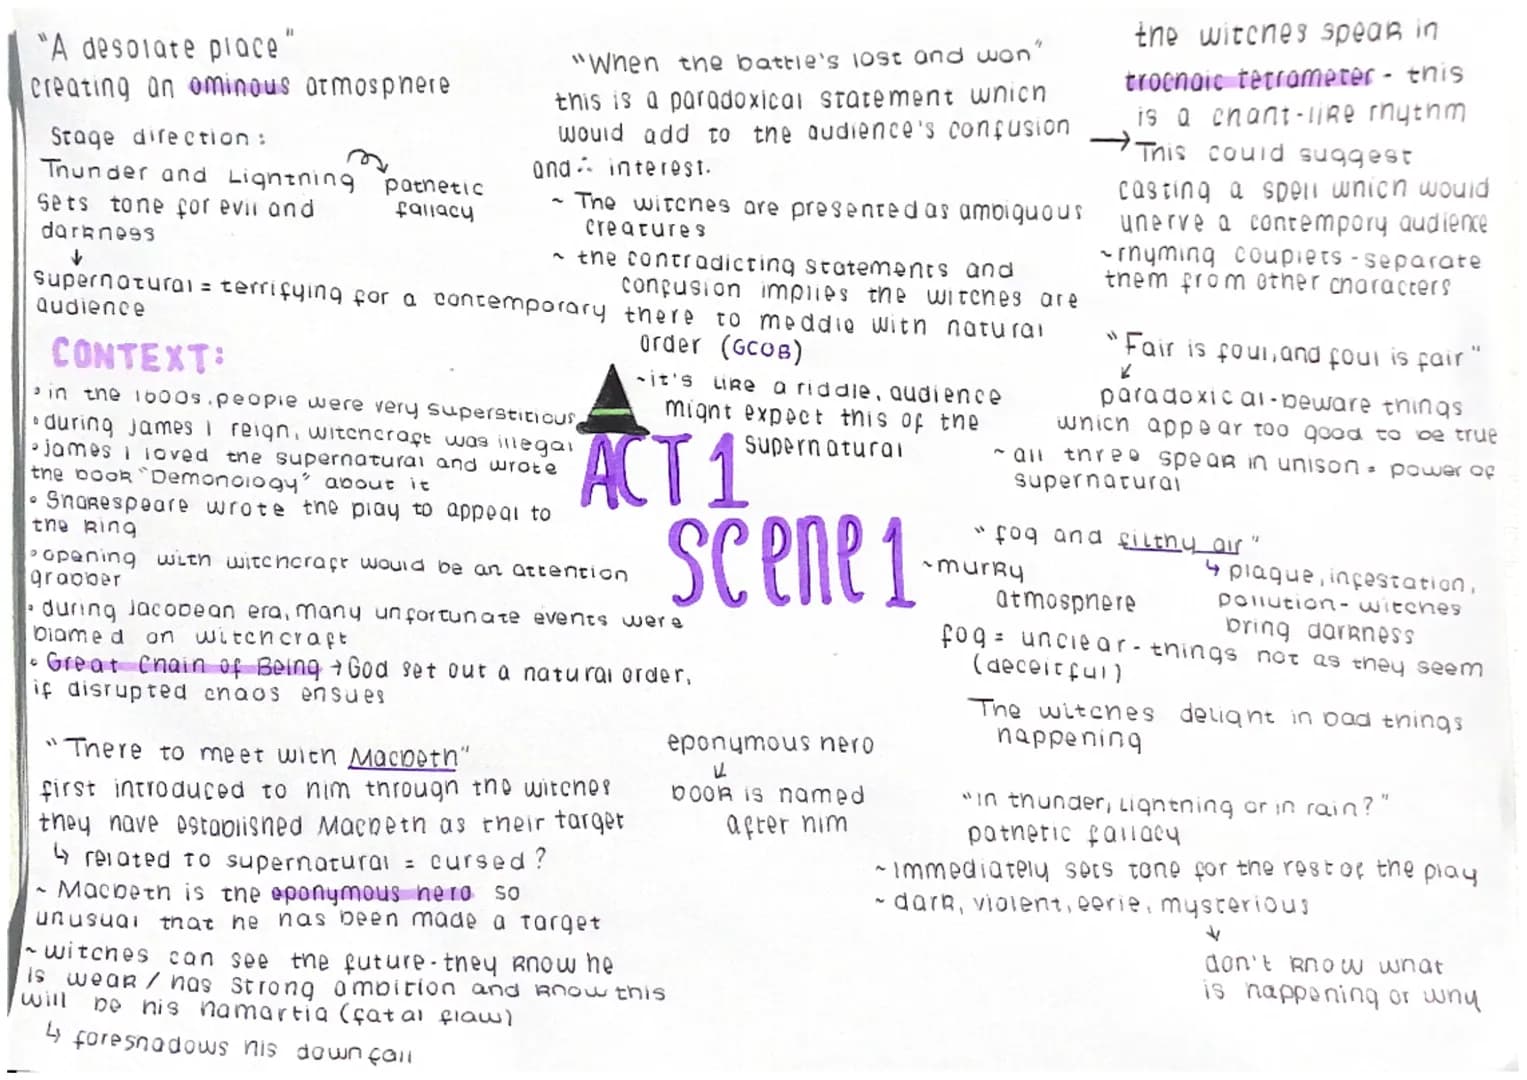 "A desolate place"
creating an ominous atmosphere
Stage direction:
Thunder and Lightning
pathetic
fallacy
sets tone for evil and
darkness
supernatural = terrifying for a contemporary
audience
CONTEXT:
• in the 1600s, people were very superstitious
• during James I reign, witchcraft was illegal
• James I loved the supernatural and wrote
the book "Demonology" about it
• Shakespeare wrote the play to appeal to
the king
• opening with witchcraft would be an attention
grabber
• during Jacobean era, many unfortunate events were
blamed on witchcraft
• Great Chain of Being → God set out a natural order,
if disrupted chaos ensues
"There to meet with Macbeth"
first introduced to him through the witches
they have established Macbeth as their target
↳ related to supernatural = cursed?
~ Macbeth is the eponymous hero so
unusual that he has been made a target
~ witches can see the future - they know he
is weak / has strong ambition and know this
will be his hamartia (fatal flaw)
↳ foreshadows his downfall
"When the battle's lost and won"
this is a paradoxical statement which
would add to the audience's confusion
and ∴ interest.
~ The witches are presented as ambiguous
creatures
~ the contradicting statements and
confusion implies the witches are
there to meddle with natural
order (GCOB)
~ it's like a riddle, audience
might expect this of the
supernatural
ACT 1
Scene 1
eponymous hero
book is named
after him
the witches speak in
trochaic tetrameter - this
is a chant-like rhythm
→ This could suggest
casting a spell which would
unerve a contempory audience
~ rhyming couplets - separate
them from other characters
"Fair is foul, and foul is fair"
paradoxical - beware things
which appear too good to be true
~ all three speak in unison = power of
supernatural
"fog and filthy air"
~ murky
atmosphere
↳ plague, infestation,
pollution - witches
bring darkness
fog = unclear - things not as they seem
(deceitful)
The witches delight in bad things
happening
"In thunder, lightning or in rain?"
pathetic fallacy
~ immediately sets tone for the rest of the play
~ dark, violent, eerie, mysterious
don't know what
is happening or why